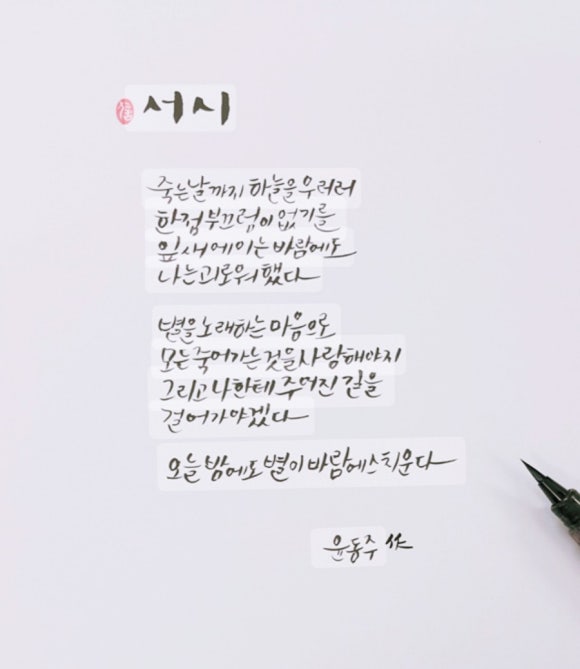 서시
죽는날까지 하늘을 우러러
한점 부끄럼이 없기를
잎새에 이는 바람에도
나는 괴로워했다
별을 노래하는 마음으로
모든 죽어가는 것을 사랑해야지
그리고 나한테 주어진 길을
걸어가야겠다
오늘 밤에도 별이 바람에 스치운다
윤동주 作